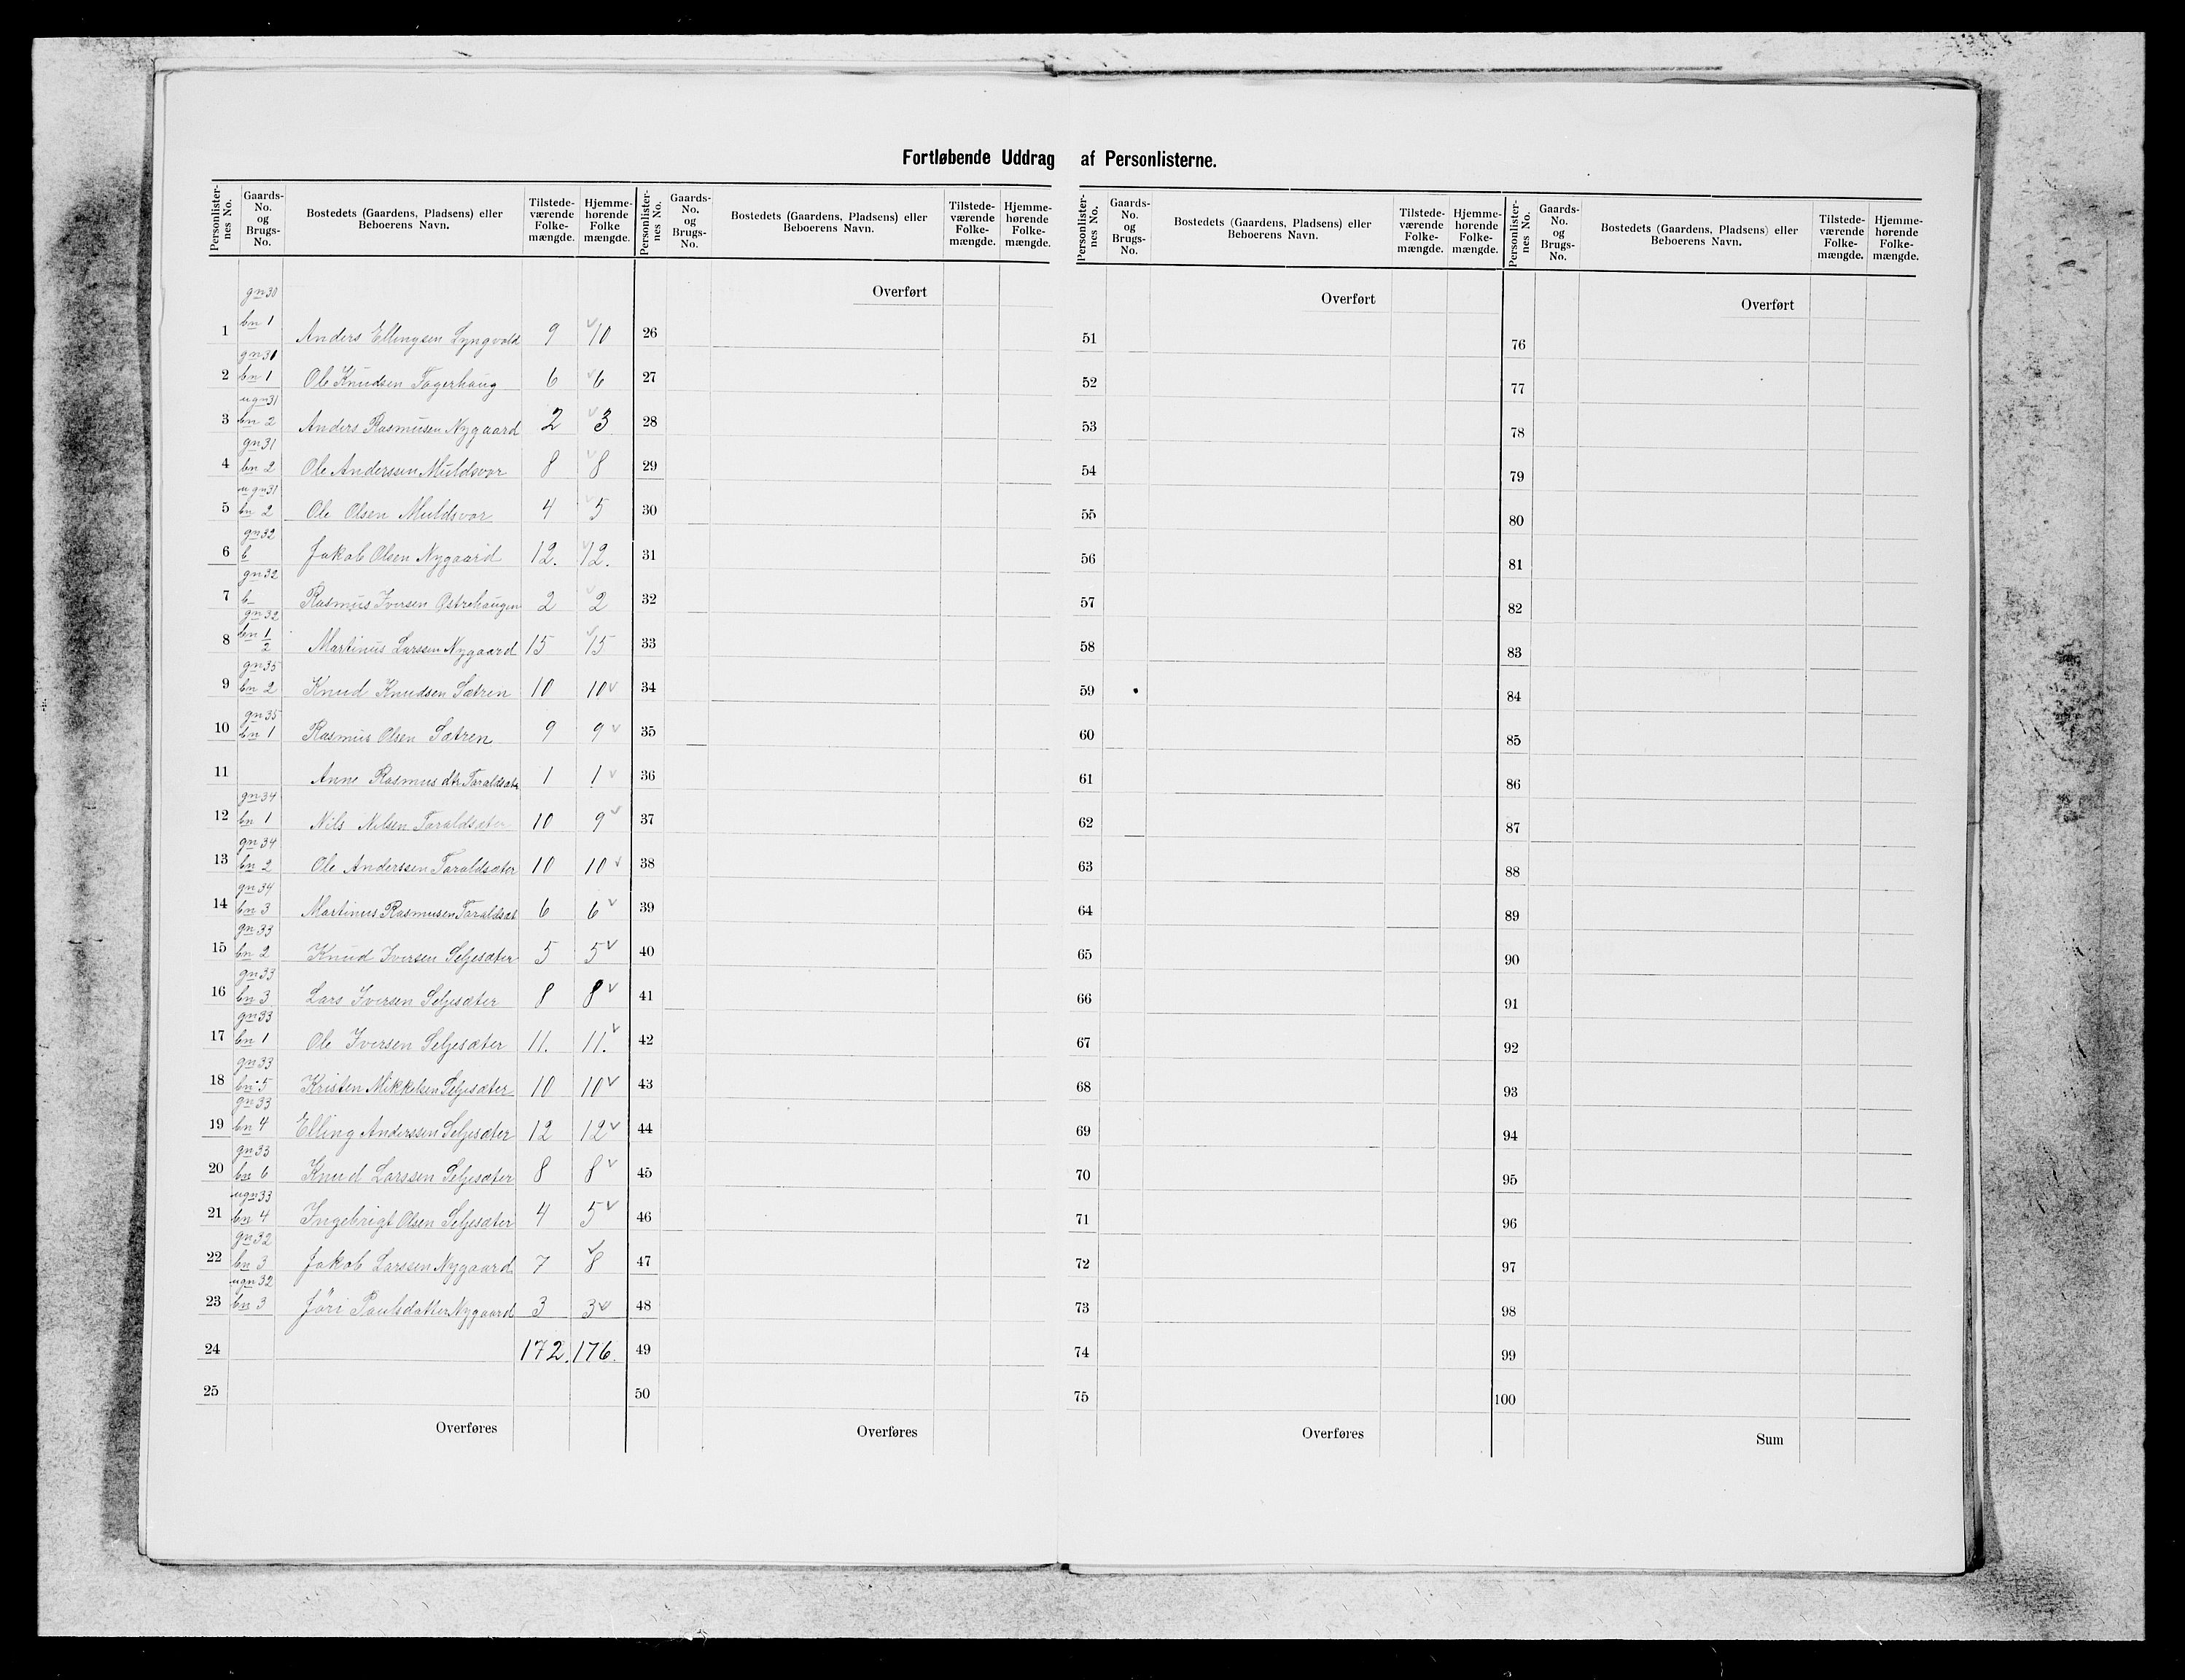 Fortløbende Uddrag af Personlisterne.
Personlister-nes No. Gaards-No. og Brugs-No. Bostedets (Gaardens, Pladsens) eller Beboerens Navn. Tilstede-værende Folke-mængde. Hjemme-hørende Folke mængde.
Personlister-nes No. Gaards-No. og Brugs-No. Bostedets (Gaardens, Pladsens) eller Beboerens Navn. Tilstede-værende Folke-mængde. Hjemme-hørende Folke-mængde.
Personlister-nes No. Gaards-No. og Brugs-No. Bostedets (Gaardens, Pladsens) eller Beboerens Navn. Tilstede-værende Folke-mængde. Hjemme-hørende Folke-mængde.
Personlister-nes No. Gaards-No. og Brugs-No. Bostedets (Gaardens, Pladsens) eller Beboerens Navn. Tilstede-værende Folke-mængde. Hjemme-hørende Folke-mængde.
gn 30
1 bn 1 Anders Ellingsen Lyngvold 9 10
gn 31
2 bn 1 Ole Knudsen Fagerhaug 6 6
ugn 31
3 bn 2 Anders Rasmusen Nygaard 2 3
gn 31
4 bn 2 Ole Anderssen Muldsvor 8 8
ugn 31
5 bn 2 Ole Olsen Muldsvor 4 5
gn 32
6 b Jakob Olsen Nygaard 12. 12.
gn 32
7 b Rasmus Iversen Østrehaugen 2 2
gn 32
8 bn 1/2 Martinus Larssen Nygaard 15 15
gn 35
9 bn 2 Knud Knudsen Sætren 10 10
gn 35
10 bn 1 Rasmus Olsen Sætren 9 9
11 Anne Rasmus dtr Taraldsæter 1 1
gn 34
12 bn 1 Nils Nilsen Taraldsæter 10 9
gn 34
13 bn 2 Ole Anderssen Taraldsæter 10 10
gn 34
14 bn 3 Martinus Rasmusen Taraldsæt 6 6
gn 33
15 bn 2 Knud Iversen Seljesæter 5 5
gn 33
16 bn 3 Lars Iversen Seljesæter 8 8
gn 33
17 bn 1 Ole Iversen Seljesæter 11. 11.
gn 33
18 bn 5 Kristen Mikkelsen Seljesæter 10 10
gn 33
19 bn 4 Elling Anderssen Seljesæter 12 12
gn 33
20 bn 6 Knud Larssen Seljesæter 8 8
ugn 33
21 bn 4 Ingebrigt Olsen Seljesæter 4 5
gn 32
22 bn 3 Jakob Larssen Nygaard 7 8
ugn 32
23 bn 3 Jöri Paulsdatter Nygaard 3 3
24 172. 176.
25
Overføres
Overført
26
27
28
29
30
31
32
33
34
35
36
37
38
39
40
41
42
43
44
45
46
47
48
49
50
Overføres
Overført
51
52
53
54
55
56
57
58
59
60
61
62
63
64
65
66
67
68
69
70
71
72
73
74
75
Overføres
Overført
76
77
78
79
80
81
82
83
84
85
86
87
88
89
90
91
92
93
94
95
96
97
98
99
100
Sum